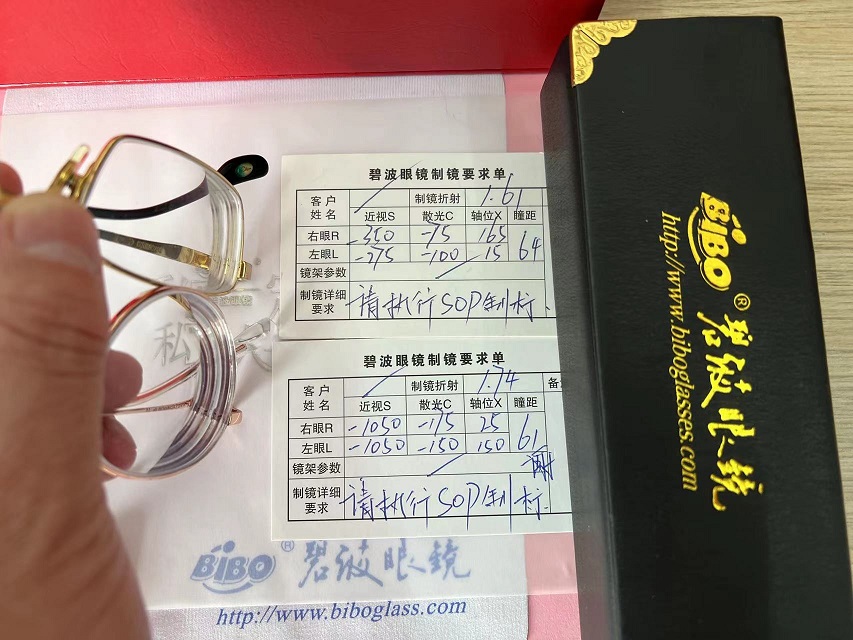 碧波眼镜制镜要求单
客户姓名 制镜折射 1.61
近视S 散光C 轴位X 瞳距
右眼R -350 -75 165 64
左眼L -275 -100 15
镜架参数
制镜详细要求 请执行SOP制标.
碧波眼镜制镜要求单
客户姓名 制镜折射 1.74 备
近视S 散光C 轴位X 瞳距
右眼R -1050 -175 25 61
左眼L -1050 -150 150
镜架参数
制镜详细要求 请执行SOP制标.
BiBO® 碧波眼鏡
http://www.biboglass.com
BiBO® 碧波眼鏡
http://www.biboglasses.com
私